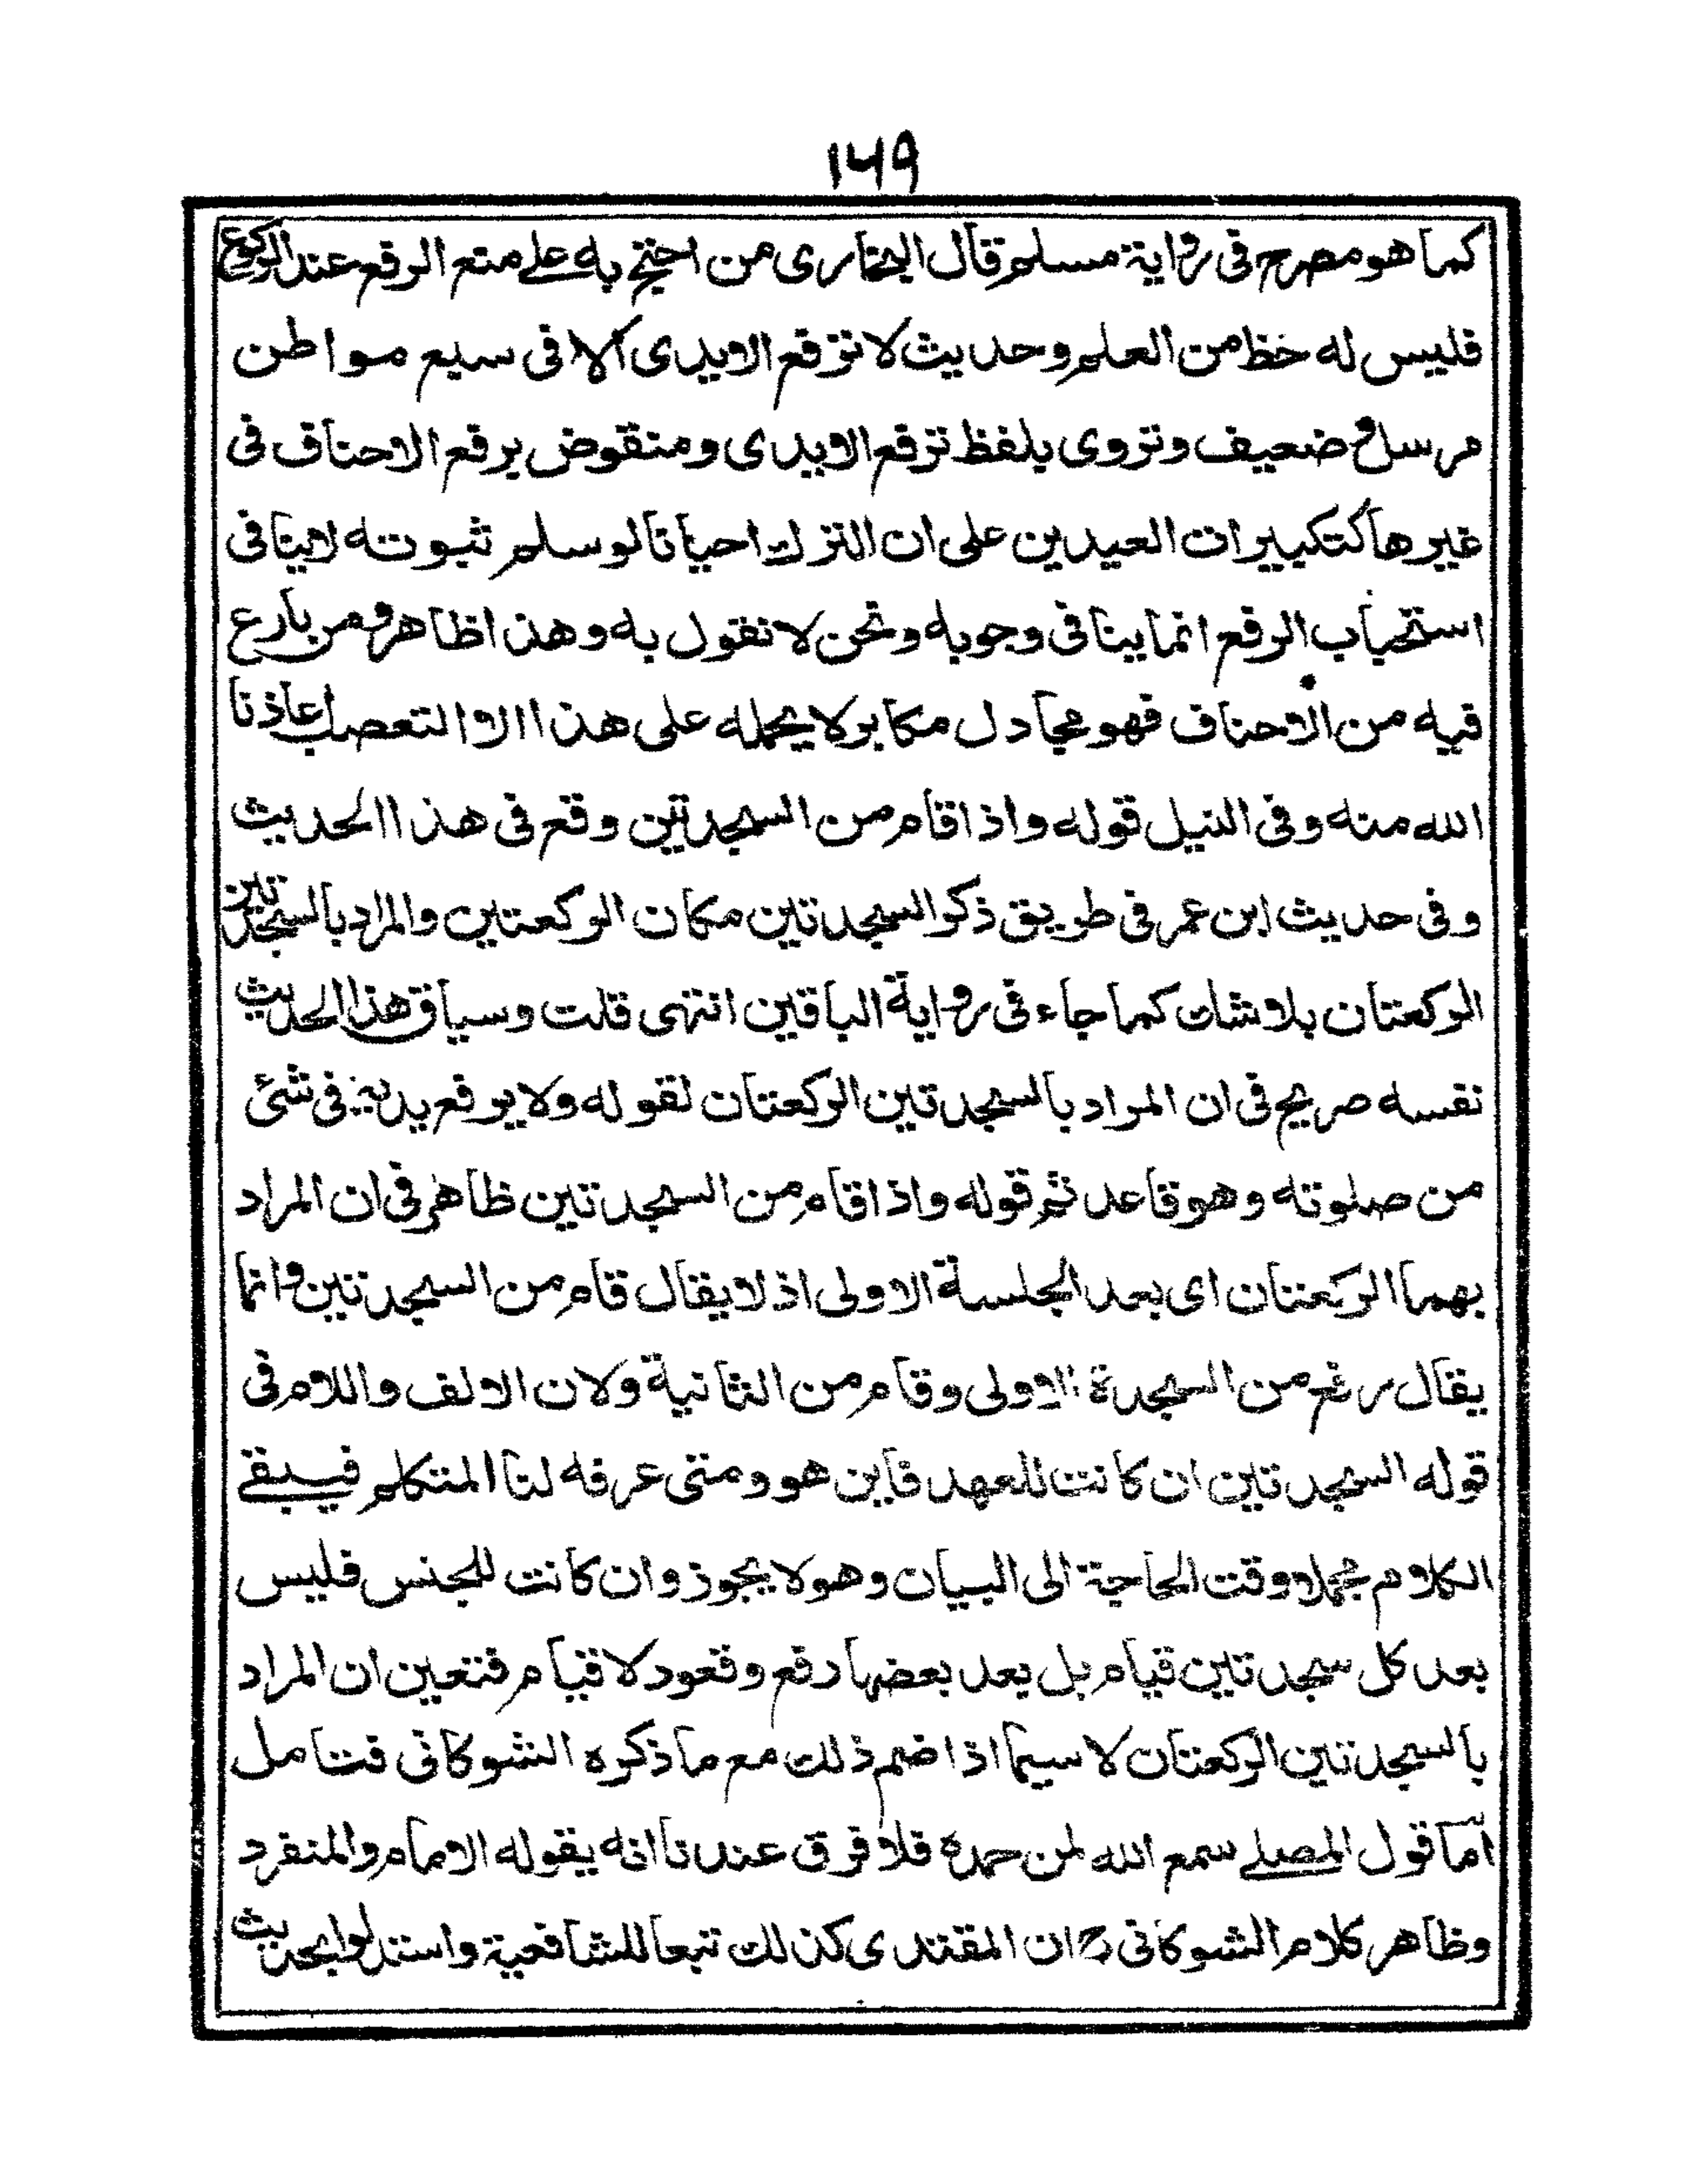 ۱۶۹
كما هو مصرح فى رواية مسلم قال البخارى من احتج به على منع الرفع عند الركوع
فليس له حظ من العلم وحديث لا ترفع الايدى الا فى سبع مواطن
مرسل ضعيف وتروى بلفظ ترفع الايدى ومنقوض برفع الاحناف فى
غيرها كتكبيرات العيدين على ان الترك احيانا لو سلم ثبوته لاينافى
استحباب الرفع انما ينافى وجوبه ونحن لا نقول به وهذا ظاهر ومن بارع
فيه من الاحناف فهو مجادل مكابر لا يحمله على هذا الا التعصب اعاذنا
الله منه وفى النيل قوله واذا قام من السجدتين وقع فى هذا الحديث
وفى حديث ابن عمر فى طريق ذكر السجدتين مكان الركعتين والمراد بالسجدتين
الركعتان بلا شك كما جاء فى رواية الباقين انتهى قلت وسياق هذا الحديث
نفسه صريح فى ان المراد بالسجدتين الركعتان لقوله ولا يرفع يديه فى شئ
من صلوته وهو قاعد ثم قوله واذا قام من السجدتين ظاهر فى ان المراد
بهما الركعتان اى بعد الجلسة الاولى اذ لا يقال قام من السجدتين وانما
يقال رفع من السجدة الاولى وقام من الثانية ولان الالف واللام فى
قوله السجدتين ان كانت للعهد فاين هو ومتى عرفه لنا المتكلم فيبقے
الكلام مجملا وقت الحاجة الى البيان وهو لا يجوز وان كانت للجنس فليس
بعد كل سجدتين قيام بل بعد بعضها رفع وقعود لا قيام فتعين ان المراد
بالسجدتين الركعتان لا سيما اذا ضم ذلك مع ما ذكره الشوكانى فتامل
امّا قول المصلے سمع الله لمن حمده فلا فرق عندنا انه يقوله الامام والمنفرد
وظاهر كلام الشوكانى رح ان المقتدى كذلك تبعا للشافعية واستدلوا بحديث